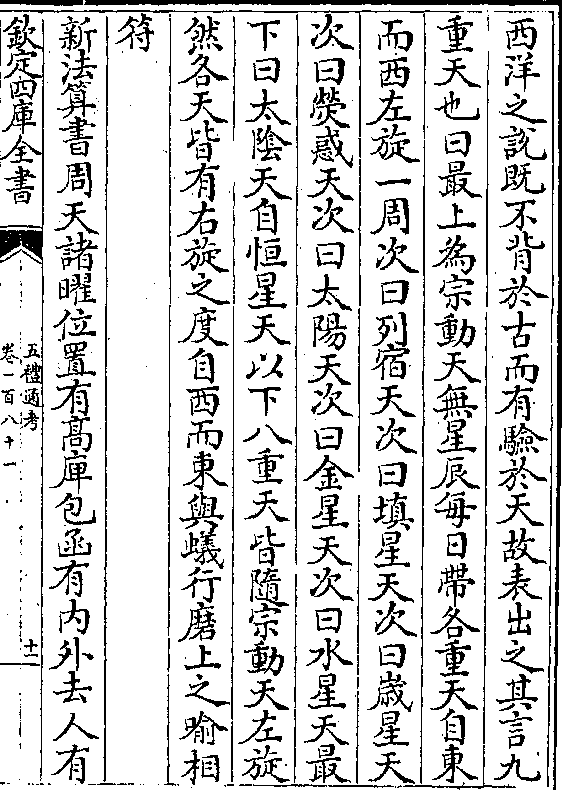 西洋之説既不背於古而有驗於天故表出之其言九
重天也曰最上為宗動天無星辰每日帶各重天自東
而西左旋一周次曰列宿天次曰填星天次曰歳星天
次曰熒惑天次曰太陽天次曰金星天次曰水星天最
下曰太陰天自恒星天以下八重天皆隨宗動天左旋
然各天皆有右旋之度自西而東與蟻行磨上之喻相
符
新法算書周天諸曜位置有髙庳包函有内外去人有
欽定四庫全書
五禮通考
卷一百八十一
十一